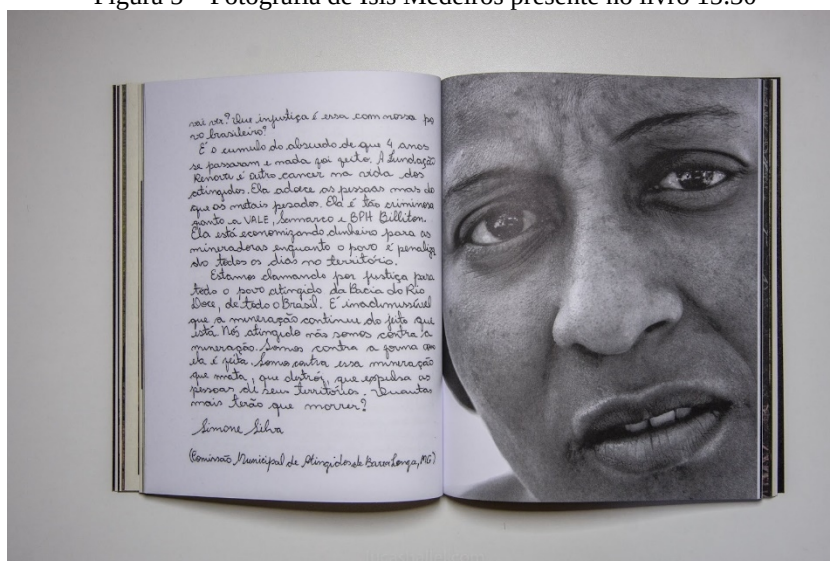 Figura 5 – Fotografia de Isis Medeiros presente no livro 15:30
vai ver? Que injustiça é essa com nosso po
vo brasileiro?
É o cumulo do absurdo de que 4 anos
se passaram e nada foi feito. A Fundação
Renova é outro cancer na vida dos
atingidos. Ela adoece as pessoas mas do
que os metais pesados. Ela é tão criminosa
qanto a VALE, Samarco e BPH Billiton.
Ela está economizando dinheiro para as
mineradoras enquanto o povo é penaliza
do todos os dias no território.
Estamos clamando por justiça para
todo o povo atingido da Bacia do Rio
Doce, de todo o Brasil. É inadimissível
que a mineração continue do jeito que
está. Nós atingido não somos contra a
mineração. Somos contra a forma que
ela é feita. Somos contra essa mineração
que mata, que destrói, que expulsa as
pessoas de seus territórios. Quantas
mais terão que morrer?
Simone Silva
(Comissão Municipal de Atingidos de Barra Longa, MG)